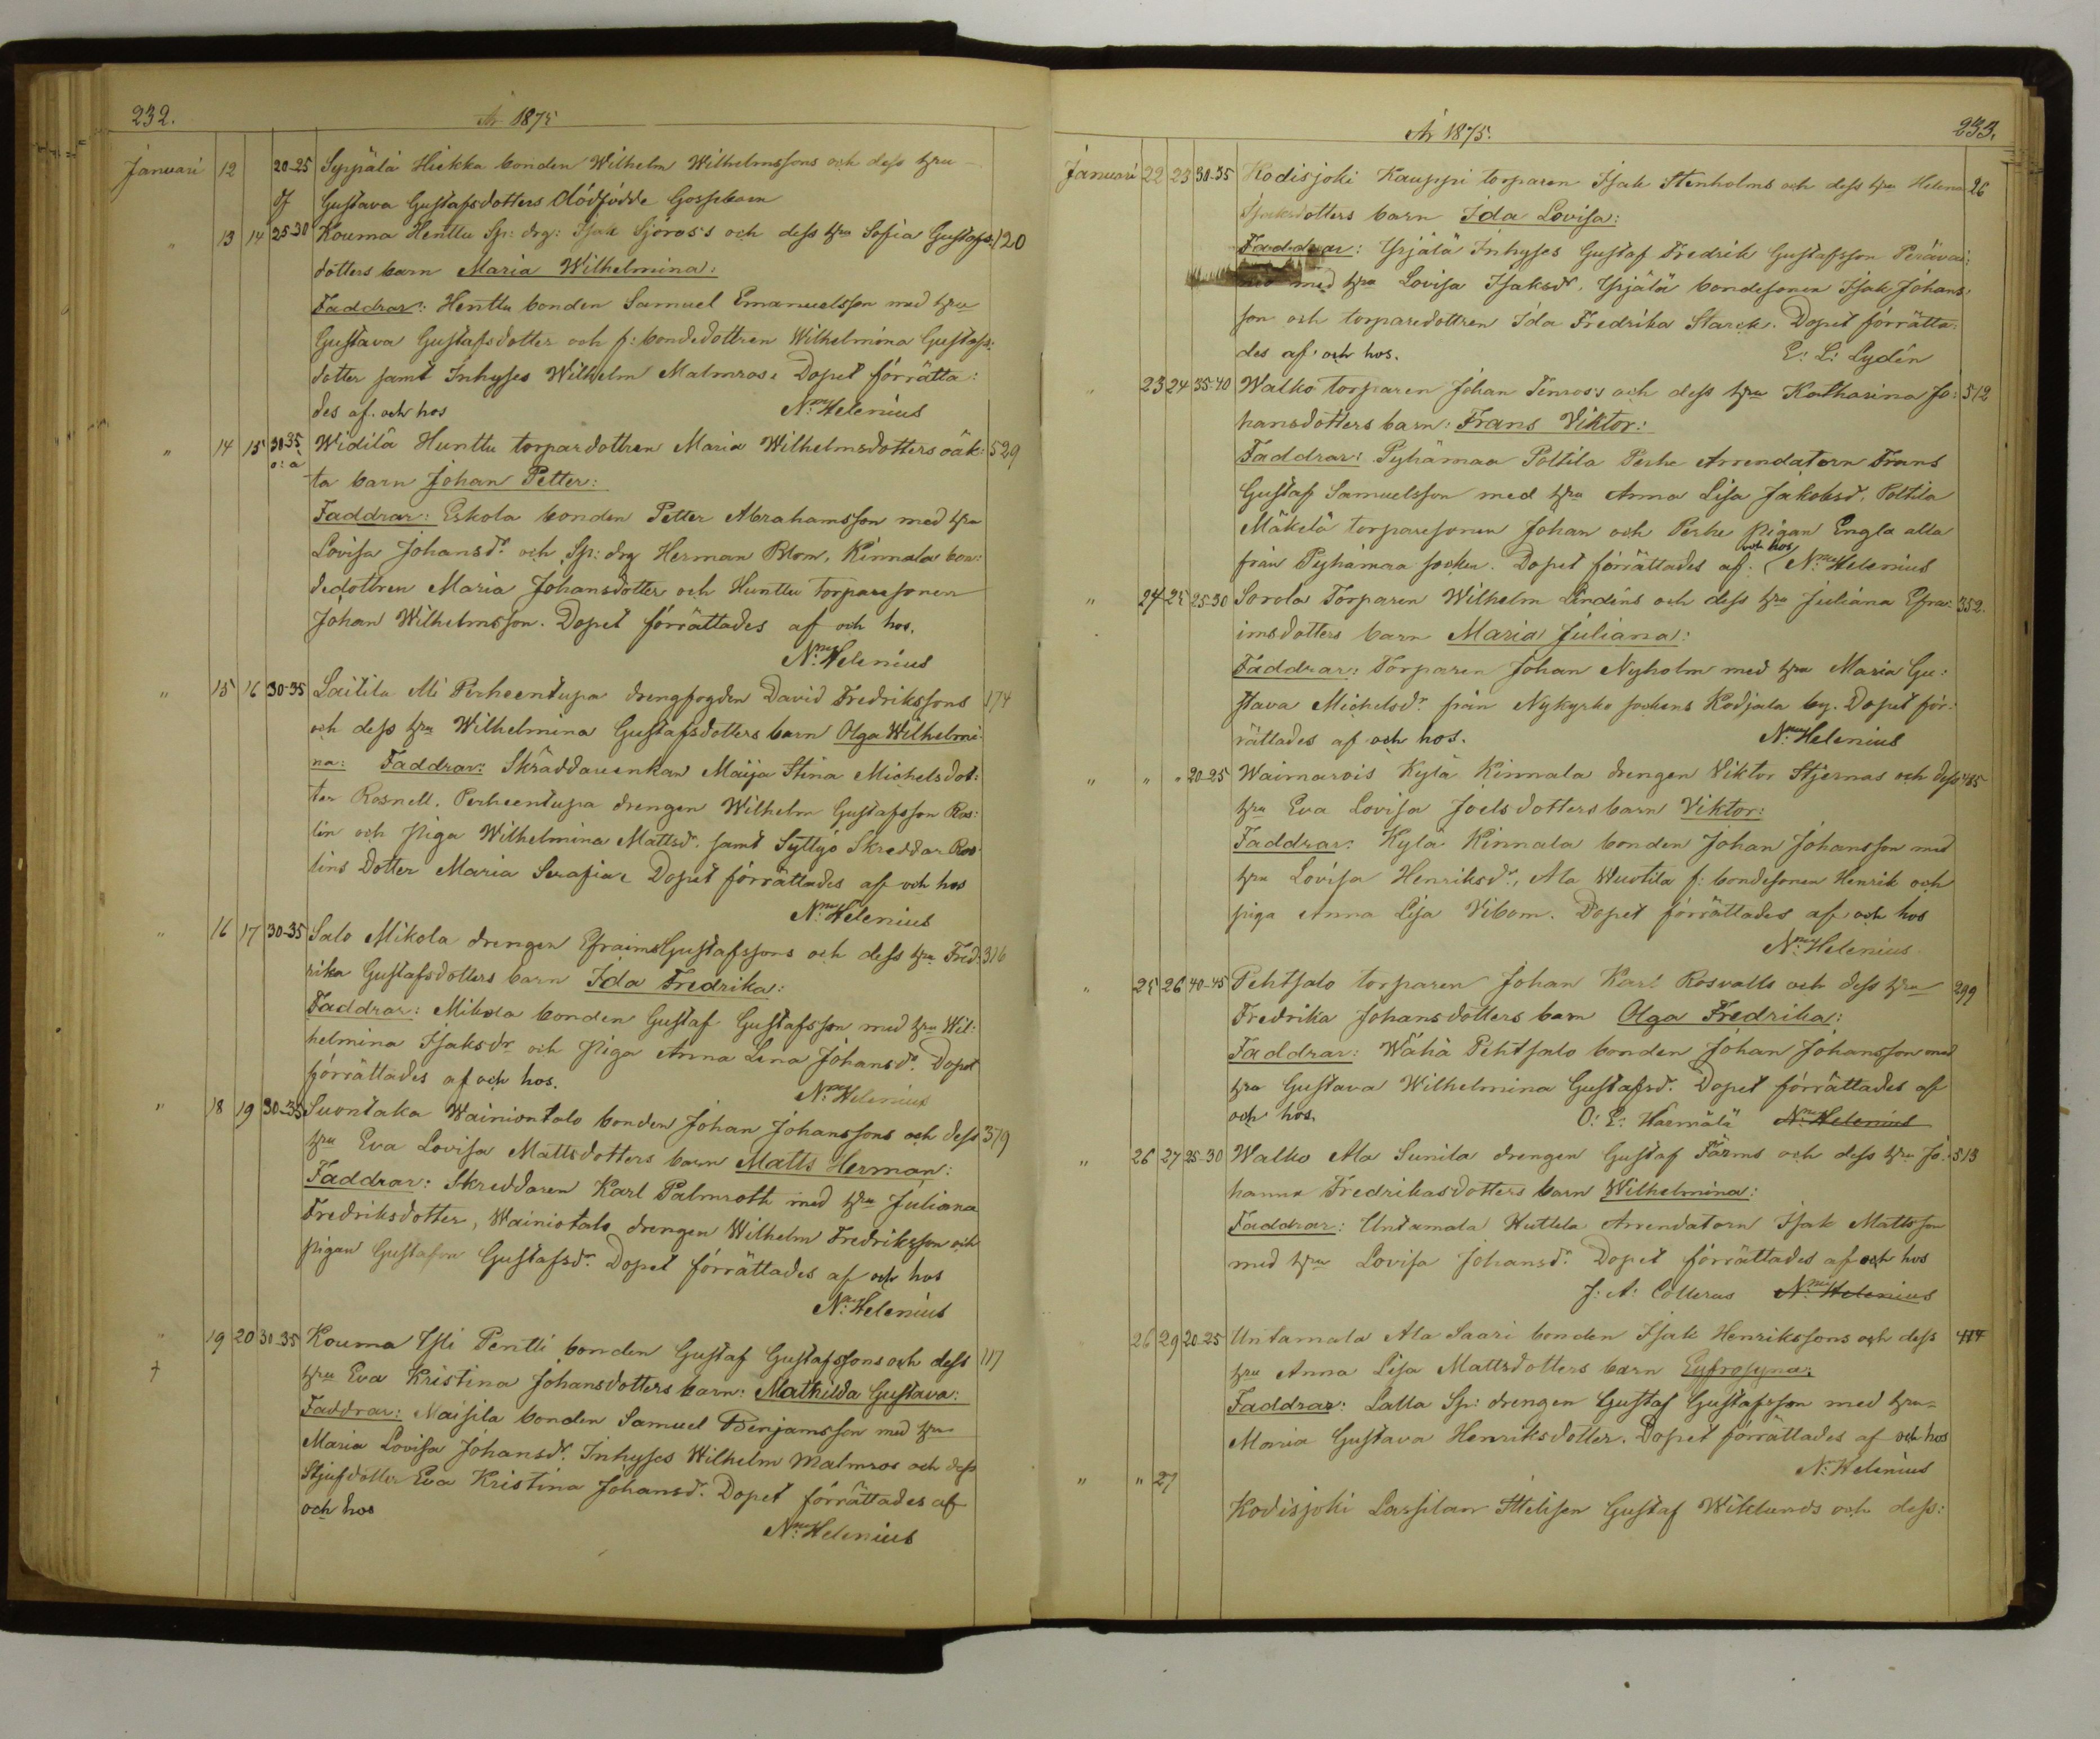 232.
År 1875
Januari 12 20-25 Syppälä Hiekka bonden Wilhelm Wilhelmssons och dess hru
Gustava Gustafsdotters Dödfödde Gossebarn
" 13 14 25-30 Kouma Henttu Sp: drg: Isak Sjöros's och dess hru Sofia Gustafs: 120
dotters barn Maria Wilhelmina:
Faddrar: Henttu bonden Samuel Emanuelsson med hru
Gustava Gustafsdotter och f: bondedottren Wilhelmina Gustafs:
dotter samt Inhyses Wilhelm Malmros. Dopet förrätta:
des af och hos N:mus Helenius
" 14 15 30-35 o: ä Widilä Hunttu torpardottren Maria Wilhelmsdotters oäk: 529
ta barn Johan Petter:
Faddrar: Eskola bonden Petter Abrahamsson med hru
Lovisa Johansdr. och Sp: drg Herman Blom, Kinnala bon:
dedottren Maria Johansdotter och Hunttu torparesonen
Johan Wilhelmsson. Dopet förrättades af och hos.
N:mus Helenius
" 15 16 30-35 Laitila Ali Perheentupa drengfogden David Fredrikssons 174
och dess hru Wilhelmina Gustafsdotters barn Olga Wilhelmi
na: Faddrar: Skräddareenkan Maija Stina Michelsdot:
ter Rosnell. Perheentupa drengen Wilhelm Gustafsson Ros:
lin och Piga Wilhelmina Mattsd. samt Syttyö Skreddar Ros
lins Dotter Maria Serafia. Dopet förrättades af och hos
N:mus Helenius
" 16 17 30-35 Salo Mikola drengen Efraims Gustafssons och dess hru Fred: 316
rika Gustafsdotters barn Ida Fredrika:
Faddrar: Mikola bonden Gustaf Gustafsson med hru Wil:
helmina Isaksdr och Piga Anna Lena Johansdr. Dopet
förrättades af och hos.
N:mus Helenius
" 18 19 30-35 Suontaka Wainiontalo bonden Johan Johanssons och dess 379
hru Eva Lovisa Mattsdotters barn Matts Herman:
Faddrar: Skreddaren Karl Palmroth med hru Juliana
Fredriksdotter, Wainiotalo drengen Wilhelm Fredriksson och
Pigan Gustafva Gustafsdr. Dopet förrättades af och hos
N:mus Helenius
" 19 20 30-35 Kouma Yli Pentti bonden Gustaf Gustafssons och dess 117
† hru Eva Kristina Johansdotters barn: Mathilda Gustava:
Faddrar: Maisila bonden Samuel Benjamsson med hru
Maria Lovisa Johansdr. Inhyses Wilhelm Malmros och dess
Stjufdotter Eva Kristina Johansdr. Dopet förrättades af
och hos
N:mus Helenius
År 1875.
233.
Januari 22 23 30-35 Kodisjoki Kauppi torparen Isak Stenholms och dess hru Helena 26
Isaksdotters barn Ida Lovisa:
Faddrar: Yrjälä Inhyses Gustaf Fredrik Gustafsson Perävai:
med hru Lovisa Isaksdr. Yrjälä bondesonen Isak Johans
son och torparedottren Ida Fredrika Starck. Dopet förrätta:
des af och hos. E: L: Lydén
" 23 24 35-40 Walko torparen Johan Tenros's och dess hru Katharina Jo: 512
hansdotters barn: Frans Viktor:
Faddrar: Pyhämaa Polttila Perhe Arrendatorn Frans
Gustaf Samuelsson med hru Anna Lisa Jakobsd. Polttila
Mäkelä torparesonen Johan och Perhe pigan Engla alla
från Pyhämaa socken. Dopet förrättades af och hos N:mus Helenius
" 24 25 25-30 Sorola Torparen Wilhelm Lindéns och dess hru Juliana Efra: 352.
imsdotters barn Maria Juliana:
Faddrar: Torparen Johan Nyholm med hru Maria Gu:
stava Michelsdr. från Nykyrko sockens Kodjala by. Dopet för:
rättades af och hos.
N:mus Helenius
" " " 20-25 Waimarois Kylä Kinnala drengen Viktor Stjernas och dess 485
hru Eva Lovisa Joelsdotters barn Viktor:
Faddrar: Kylä Kinnala bonden Johan Johansson med
hru Lovisa Henriksdr., Ala Wuotila f: bondesonen Henrik och
piga Anna Lisa Vibom. Dopet förrättades af och hos
N:mus Helenius
" 25 26 40-45 Pehtsalo torparen Johan Karl Rosvalls och dess hru 299
Fredrika Johansdotters barn Olga Fredrika:
Faddrar: Wähä Pehtsalo bonden Johan Johansson med
hru Gustava Wilhelmina Gustafsdr. Dopet förrättades af
och hos. O: E: Haemälä N:mus Helenius
" 26 27 25-30 Walko Ala Sunila drengen Gustaf Färms och dess hru Jo: 513
hanna Fredrikasdotters barn Wilhelmina:
Faddrar: Untamala Huttila Arrendatorn Isak Mattsson
med hru Lovisa Johansd. Dopet förrättades af och hos
J: A: Collerus N:mus Helenius
26 29 20-25 Untamala Ala Saari bonden Isak Henrikssons och dess 414
hru Anna Lisa Mattsdotters barn Eufrosyna:
Faddrar: Lalla Sp: drengen Gustaf Gustafsson med hru
Maria Gustava Henriksdotter. Dopet förrättades af och hos
N: Helenius
" " 27
Kodisjoki Lassilan Itselisen Gustaf Wiklunds och dess: